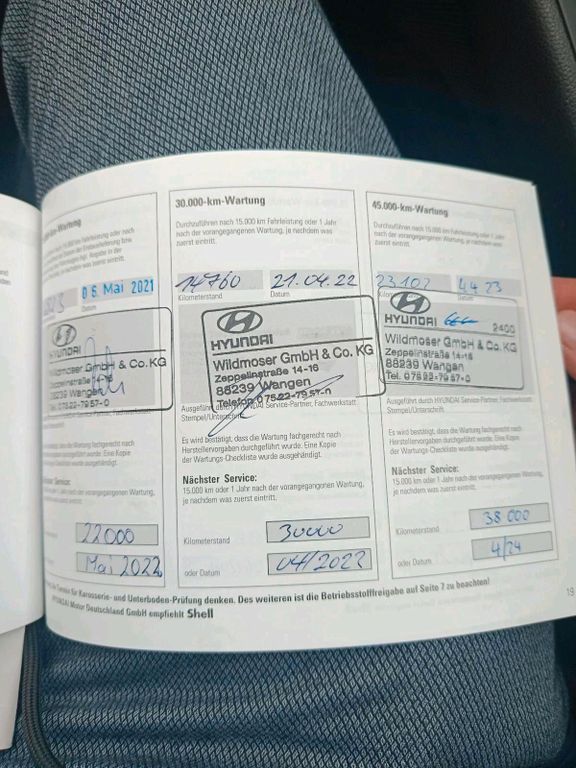 km-Wartung
06. Mai 2021
HYUNDAI
Wildmoser GmbH & Co. KG
Zeppelinstraße 14-16
88239 Wangen
Tel. 07522-7957-0
Es wird bestätigt, dass die Wartung fachgerecht nach
Herstellervorgaben durchgeführt wurde. Eine Kopie
der Wartungs-Checkliste wurde ausgehändigt.
Service:
15.000 km oder 1 Jahr nach der vorangegangenen Wartung,
je nachdem was zuerst eintritt.
22000
Mai 2022
30.000-km-Wartung
Durchzuführen nach 15.000 km Fahrleistung oder 1 Jahr
nach der vorangegangenen Wartung, je nachdem was
zuerst eintritt.
14760 21.04.22
Kilometerstand Datum
HYUNDAI
Wildmoser GmbH & Co. KG
Zeppelinstraße 14-16
88239 Wangen
Telefon 07522-7957-0
Ausgeführt durch HYUNDAI Service-Partner, Fachwerkstatt
Stempel/Unterschrift.
Es wird bestätigt, dass die Wartung fachgerecht nach
Herstellervorgaben durchgeführt wurde. Eine Kopie
der Wartungs-Checkliste wurde ausgehändigt.
Nächster Service:
15.000 km oder 1 Jahr nach der vorangegangenen Wartung,
je nachdem was zuerst eintritt.
Kilometerstand 30000
oder Datum 04/2023
45.000-km-Wartung
Durchzuführen nach 15.000 km Fahrleistung oder 1 Jahr
nach der vorangegangenen Wartung, je nachdem was
zuerst eintritt.
23102 4.4.23
Kilometerstand Datum
HYUNDAI 2400
Wildmoser GmbH & Co. KG
Zeppelinstraße 14-16
88239 Wangen
Tel. 07522-7957-0
Ausgeführt durch HYUNDAI Service-Partner, Fachwerkstatt
Stempel/Unterschrift.
Es wird bestätigt, dass die Wartung fachgerecht nach
Herstellervorgaben durchgeführt wurde. Eine Kopie
der Wartungs-Checkliste wurde ausgehändigt.
Nächster Service:
15.000 km oder 1 Jahr nach der vorangegangenen Wartung,
je nachdem was zuerst eintritt.
Kilometerstand 38 000
oder Datum 4/24
Service für Karosserie- und Unterboden-Prüfung denken. Des weiteren ist die Betriebsstofffreigabe auf Seite 7 zu beachten!
HYUNDAI Motor Deutschland GmbH empfiehlt Shell
19